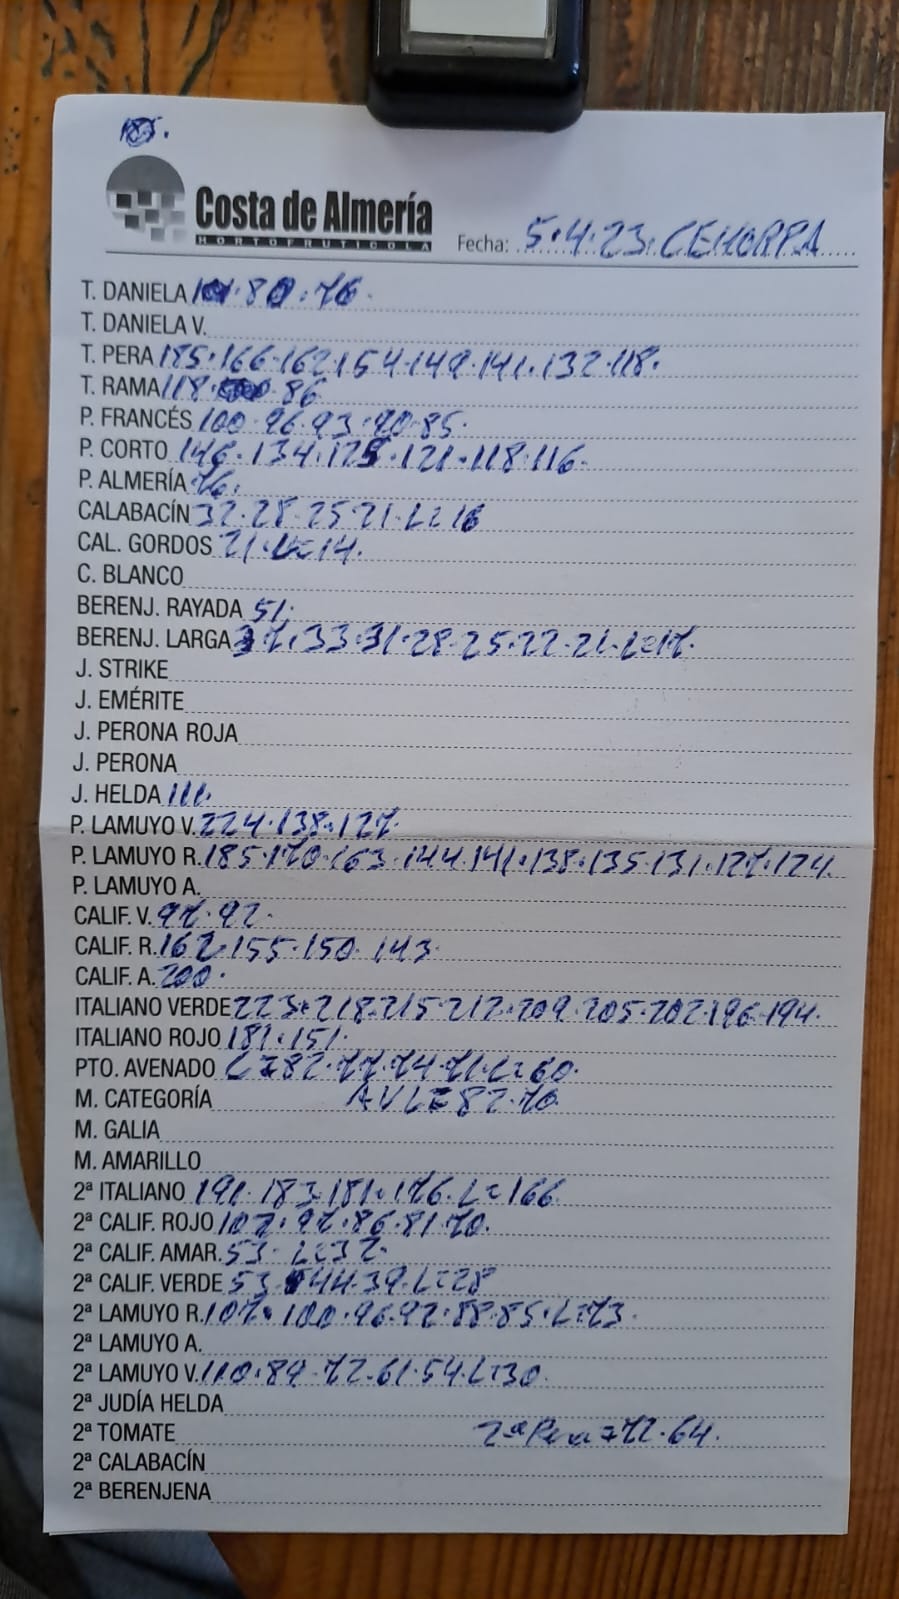 Costa de Almería
HORTOFRUTICOLA
Fecha: 5.4.23. CEHORPA
T. DANIELA 80.76.
T. DANIELA V.
T. PERA 185.166.162.154.149.141.132.118.
T. RAMA 118. 86
P. FRANCÉS 100.96.93.90.85.
P. CORTO 146.134.125.121.118.116.
P. ALMERÍA 76.
CALABACÍN 32.28.25.21.L=16
CAL. GORDOS 21.L=14.
C. BLANCO
BERENJ. RAYADA 51.
BERENJ. LARGA 37.33.31.28.25.22.21.L=17.
J. STRIKE
J. EMÉRITE
J. PERONA ROJA
J. PERONA
J. HELDA 111.
P. LAMUYO V. 224.138.127.
P. LAMUYO R. 185.170.163.144.141.138.135.131.127.124.
P. LAMUYO A.
CALIF. V. 97.92.
CALIF. R. 162.155.150.143.
CALIF. A. 200.
ITALIANO VERDE 223.218.215.212.209.205.202.196.194.
ITALIANO ROJO 181.151.
PTO. AVENADO L=82.77.74.71.L=60.
M. CATEGORÍA AVL=82.70.
M. GALIA
M. AMARILLO
2ª ITALIANO 191.183.181.176.L=166
2ª CALIF. ROJO 107.97.86.81.70.
2ª CALIF. AMAR. 53.L=37.
2ª CALIF. VERDE 53.44.39.L=28
2ª LAMUYO R. 107.100.96.92.88.85.L=73.
2ª LAMUYO A.
2ª LAMUYO V. 110.84.72.61.54.L=30.
2ª JUDÍA HELDA
2ª TOMATE 2ª Pera=72.64.
2ª CALABACÍN
2ª BERENJENA